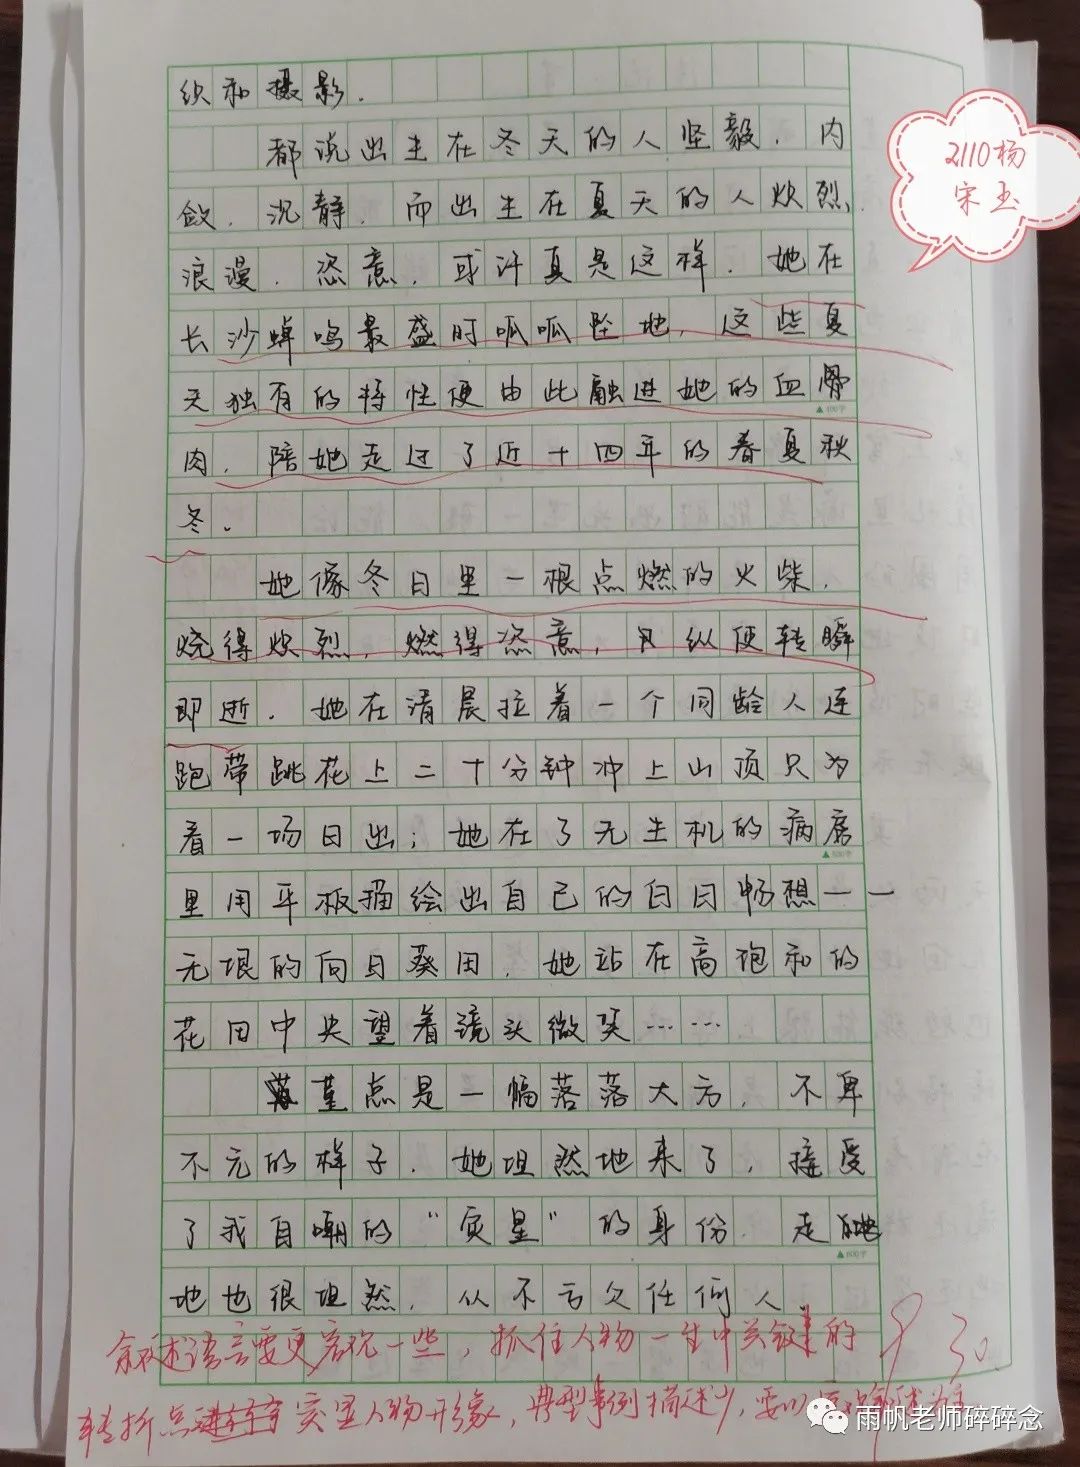 织和摄影.
都说出生在冬天的人坚毅.内
敛.沉静.而出生在夏天的人炽烈.
浪漫.恣意.或许真是这样.她在
长沙蝉鸣最盛时呱呱坠地,这些夏
天独有的特性便由此融进她的血骨
肉.陪她走过了近十四年的春夏秋
冬.
她像冬日里一根点燃的火柴,
烧得炽烈,燃得恣意,只纵使转瞬
即逝.她在清晨拉着一个同龄人连
跑带跳花上二十分钟冲上山顶只为
看一场日出;她在了无生机的病房
里用平板描绘出自己的白日畅想——
无垠的向日葵田,她站在高饱和的
花田中央望着镜头微笑……
堇点是一幅落落大方,不卑
不亢的样子.她坦然地来了,接受
了我自嘲的“灾星”的身份.走
地也很坦然,从不亏欠任何人.
叙述语言要更客观一些,抓住人物一生中关键的
转折点进行突显人物形象,典型事例描述少,要以
930
2110杨
宋玉
400字
500字
600字
雨帆老师碎碎念